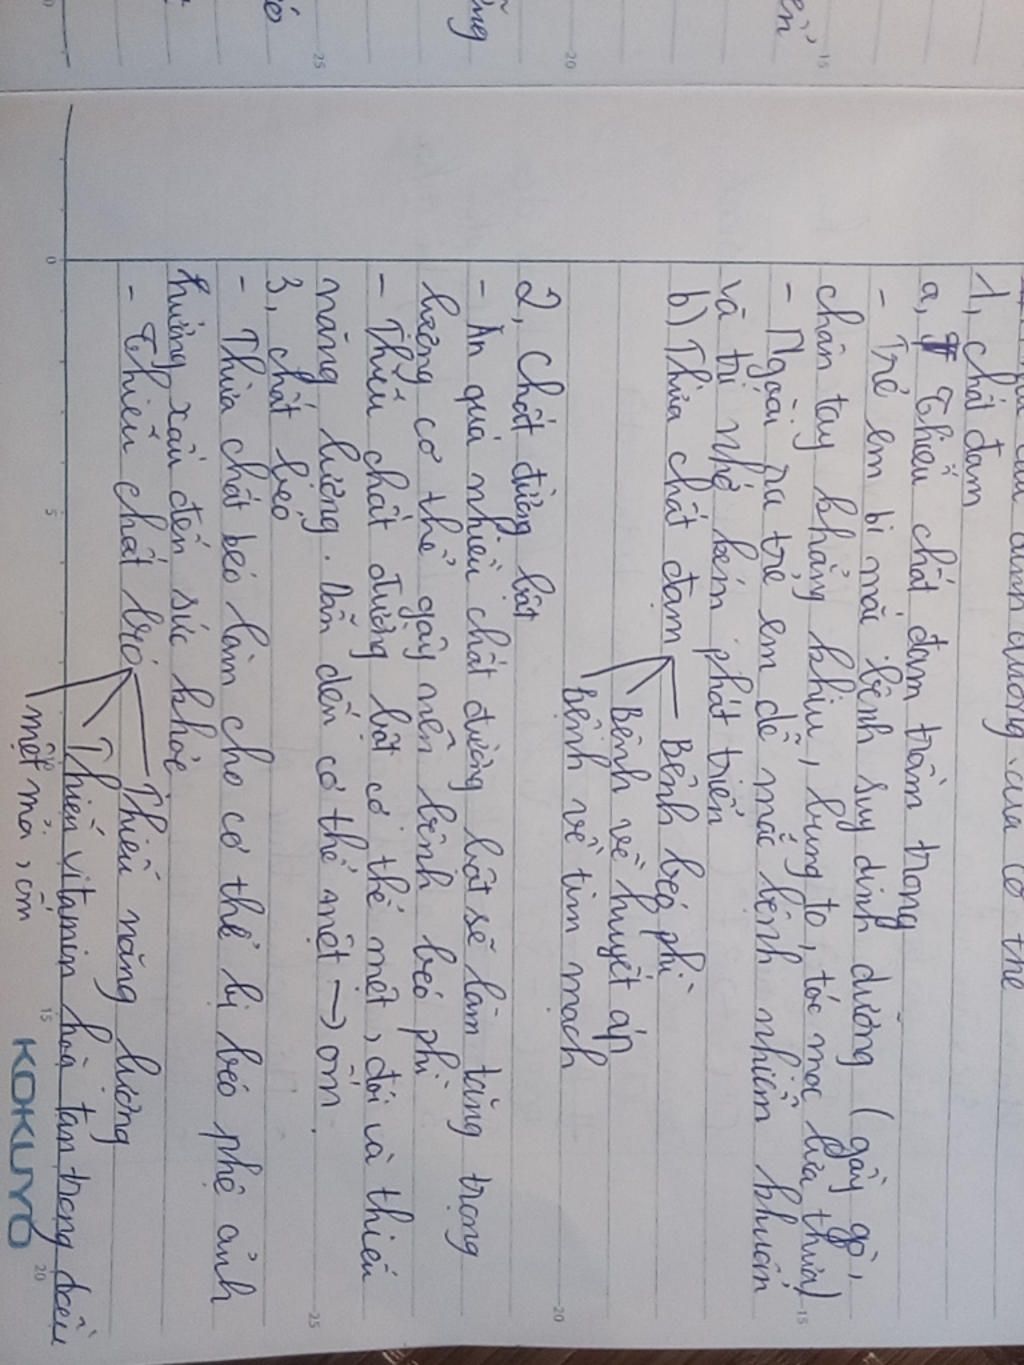 dinh dưỡng của cơ thể
1, chất đạm
a, Thiếu chất đạm trầm trọng
- Trẻ em bị mắc bệnh suy dinh dưỡng (gầy gò,
chân tay khẳng khiu, bụng to, tóc mọc lưa thưa)
- Ngoài ra trẻ em dễ mắc bệnh nhiễm khuẩn
và trí nhớ kém phát triển
b) Thừa chất đạm
Bệnh béo phì
Bệnh về huyết áp
Bệnh về tim mạch
2, Chất đường bột
- Ăn quá nhiều chất đường bột sẽ làm tăng trọng
lượng cơ thể gây nên bệnh béo phì
- Thiếu chất đường bột cơ thể mệt, đói và thiếu
năng lượng. Dẫn đến cơ thể mệt → ốm.
3, chất béo
- Thừa chất béo làm cho cơ thể bị béo phệ ảnh
hưởng xấu đến sức khỏe
- Thiếu chất béo
Thiếu năng lượng
Thiếu vitamin hoà tan trong dầu
mệt mỏi, ốm
KOKUYO